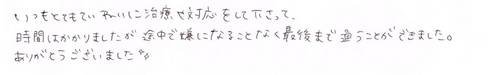 いつもとてもていねいに治療や対応をして下さって、
時間はかかりましたが途中で嫌になることなく最後まで通うことができました。
ありがとうございました